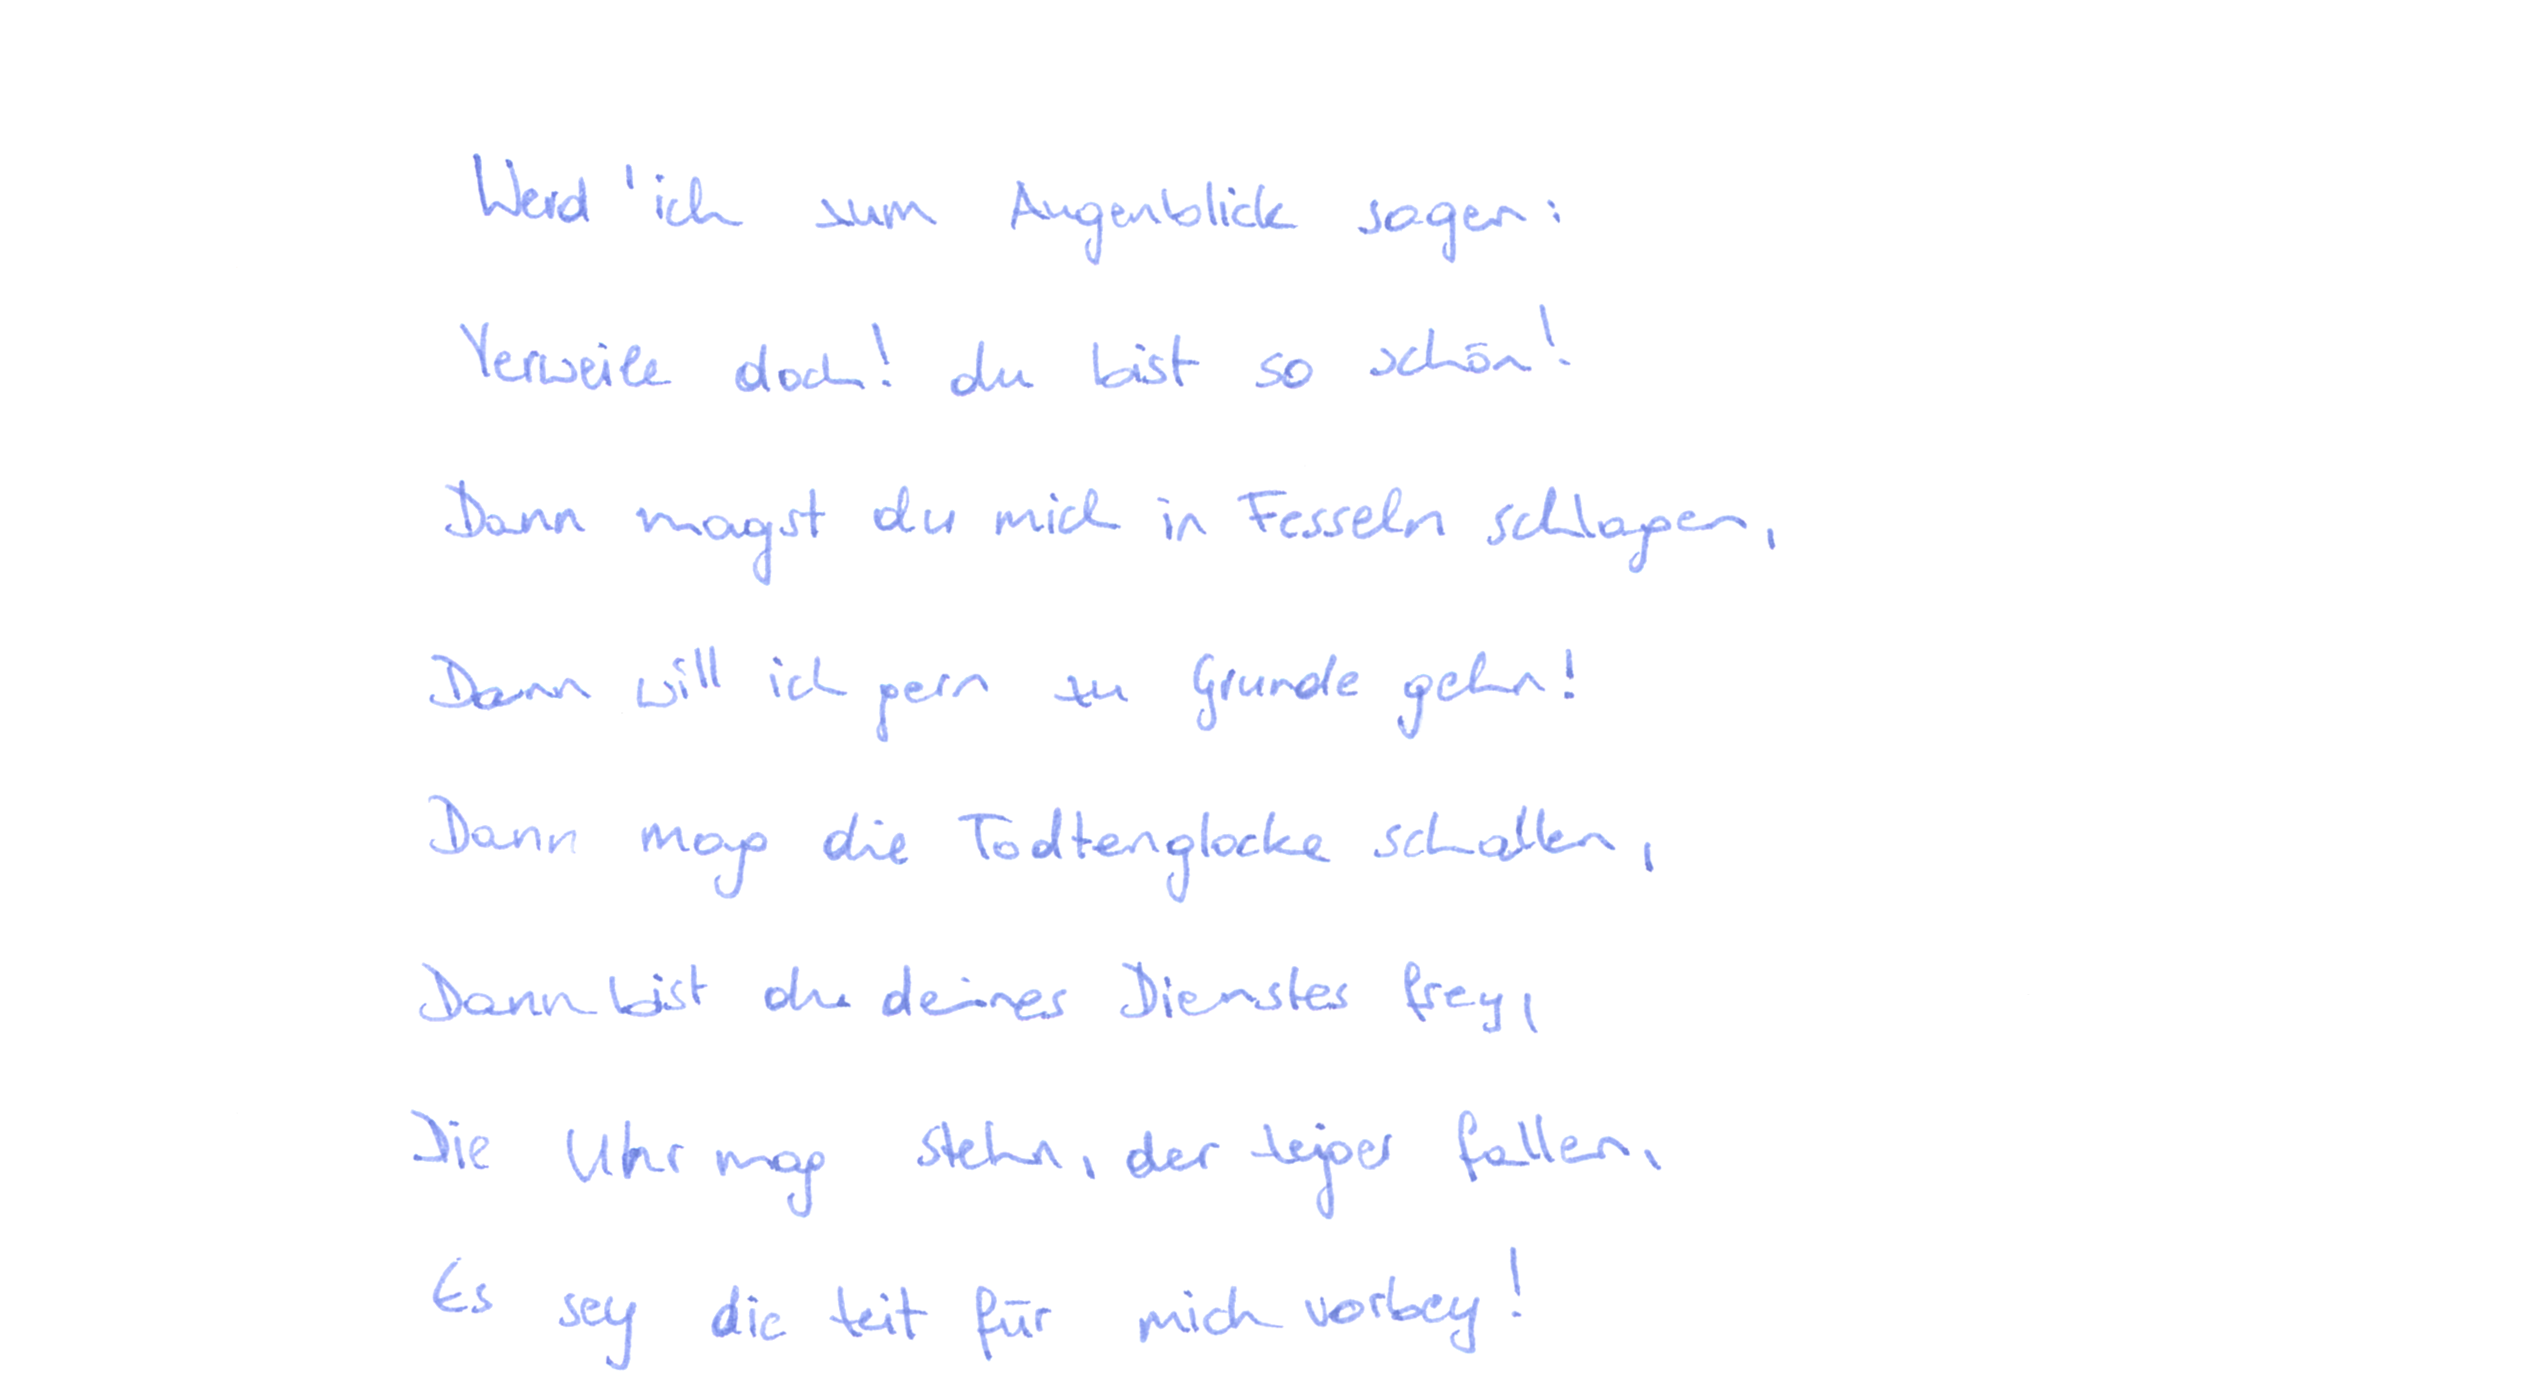 Werd 'ich zum Augenblick sagen:
Verweile doch! du bist so schön!
Dann magst du mich in Fesseln schlagen,
Dann will ich gern zu Grunde gehn!
Dann mag die Todtenglocke schallen,
Dann bist du deines Dienstes frey,
Die Uhr mag stehn, der Zeiger fallen,
Es sey die Zeit für mich vorbey!